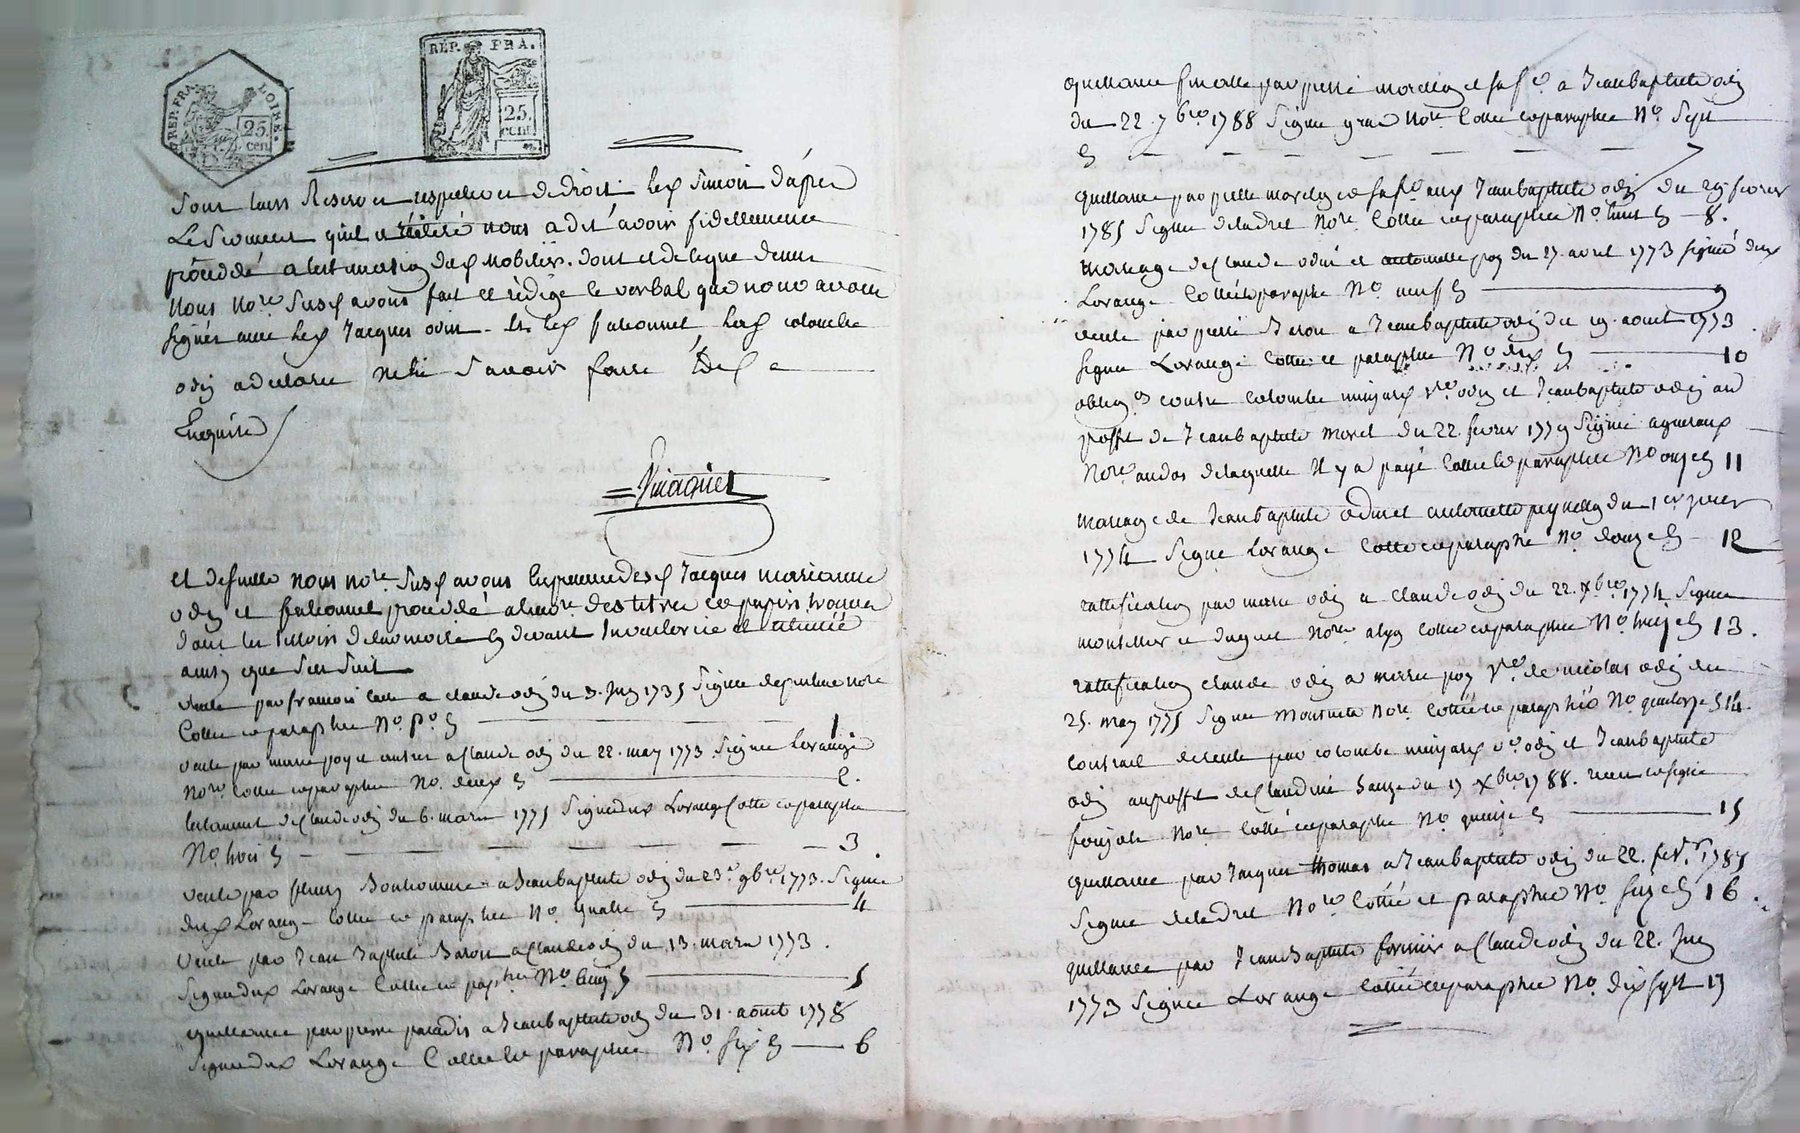 REP. FRA. LOIRE.
25 cen
REP. FRA.
25. cent
Sous leurs Reserves respectives de droit. Led Simoin d'apres
Le Serment qu'il a réitéré nous a dit avoir fidellement
procédé a lestimation dud Mobilier. dont et de ce que dessus
Nous Nore Susd avons fait et rédigé le verbal que nous avons
Signés avec led Jacques odin. Et led fationnet lad colombe
odin a declaré ne le Savoir faire de ce
Enquise
et desuitte nous nore Susd avons En presence desd Jacques marianne
odin et fationnet procédé a linre des titres et papiers trouvés
dans les tiroirs de larmoire cy devant Inventoriée et
ainsy que Sen Suit
vente par francois a claude odin du 3. Juin 1735 Signé nore
Cotté et paraphée No. po ci 1.
vente par marie poy et autres a Claude odin du 22. may 1773 Signé Lorange
Nore cotté et paraphée No. deux ci 2.
testament de Claude odin du 6. mars 1775 Signé dud Lorange Cotté et paraphé
No. trois ci 3.
vente par fleury Bonhomme a Jean baptiste odin du 23e 9bre 1773. Signé
dud Lorange Cotté et paraphée No. quatre ci 4
vente par Jean Baptiste Baron a Claude odin du 13. mars 1773.
Signé dud Lorange Cottée et paphée No cinq ci 5
quittance par pierre paradis a Jean baptiste odin du 31. aout 1778
Signé dud Lorange Cottée et paraphée No. six ci 6
quittance finalle par pierre morellon et sa fe. a Jean baptiste odin
du 22. 7bre 1788 Signé gras Nore Cotté et paraphée No. Sept
ci 7
quittance par pierre morellon et sa fe. aud Jean baptiste odin du 29 fevrier
1785 Signé delandret Nore. Cotté et paraphée No. huit ci 8.
mariage de Claude odin et antoinette poy du 27. avril 1773 signé dud
Lorange Cotté et paraphé No. neuf ci 9
vente par pierre Baron a Jean baptiste odin du 19. aout 1773
signé Lorange Cotté et paraphée No dix ci 10
obligon contre colombe ve. odin et Jean baptiste odin au
proffit de Jean baptiste Morel du 22. fevrier 1779 Signé
Nore au dos de laquelle Il y a payé Cottée et paraphée No onze ci 11
mariage de Jean baptiste odin et antoinette du 1er
1774 Signé Lorange Cotté et paraphé No. douze ci 12
rattification par marie odin a claude odin du 22. Xbre. 1774 Signé
et duguet Nore Cotté et paraphée No. treize ci 13.
rattification claude odin a marie poy Ve. de nicolas odin du
25. may 1775 Signé Nore. Cottée et paraphée No. quatorze ci 14.
Contrat de rente par colombe ve. odin et Jean baptiste
odin au proffit de Claudine du 17 Xbre. 1788. recu et signé
Nore Cotté et paraphé No quinze ci 15
quittance par Jacques thomas a Jean baptiste odin du 22. fev.r 1787
Signé delandret Nore Cotté et paraphée No. seize ci 16.
quittance par Jean Baptiste fornier a Claude odin du 22. Juin
1773 Signée Lorange Cottée et paraphée No. dix sept 17